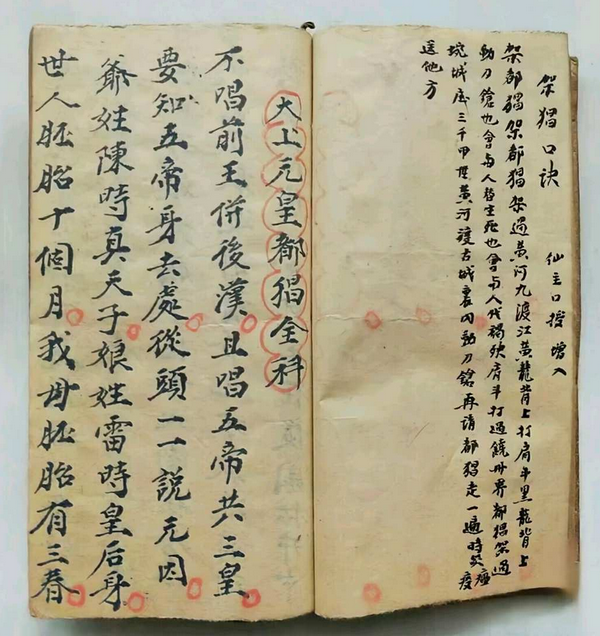 架猖口诀 仙主口授 增入
架都猖架都猖架過黄河九渡江黄龍背上打肩斗黑龍背上
動刀鎗也會与人替生死也會与人代禍殃肩斗打過饒州界都猖架過
城底三千甲黄河渡古城裏内動刀鎗再請都猖走一遍時災瘟疫
送他方
大上元皇都猖全科
不唱前王併後漢且唱五帝共三皇
要知五帝身去處從頭一一說元因
爺姓陳時真天子娘姓雷時皇后身
世人胚胎十個月我母胚胎有三春